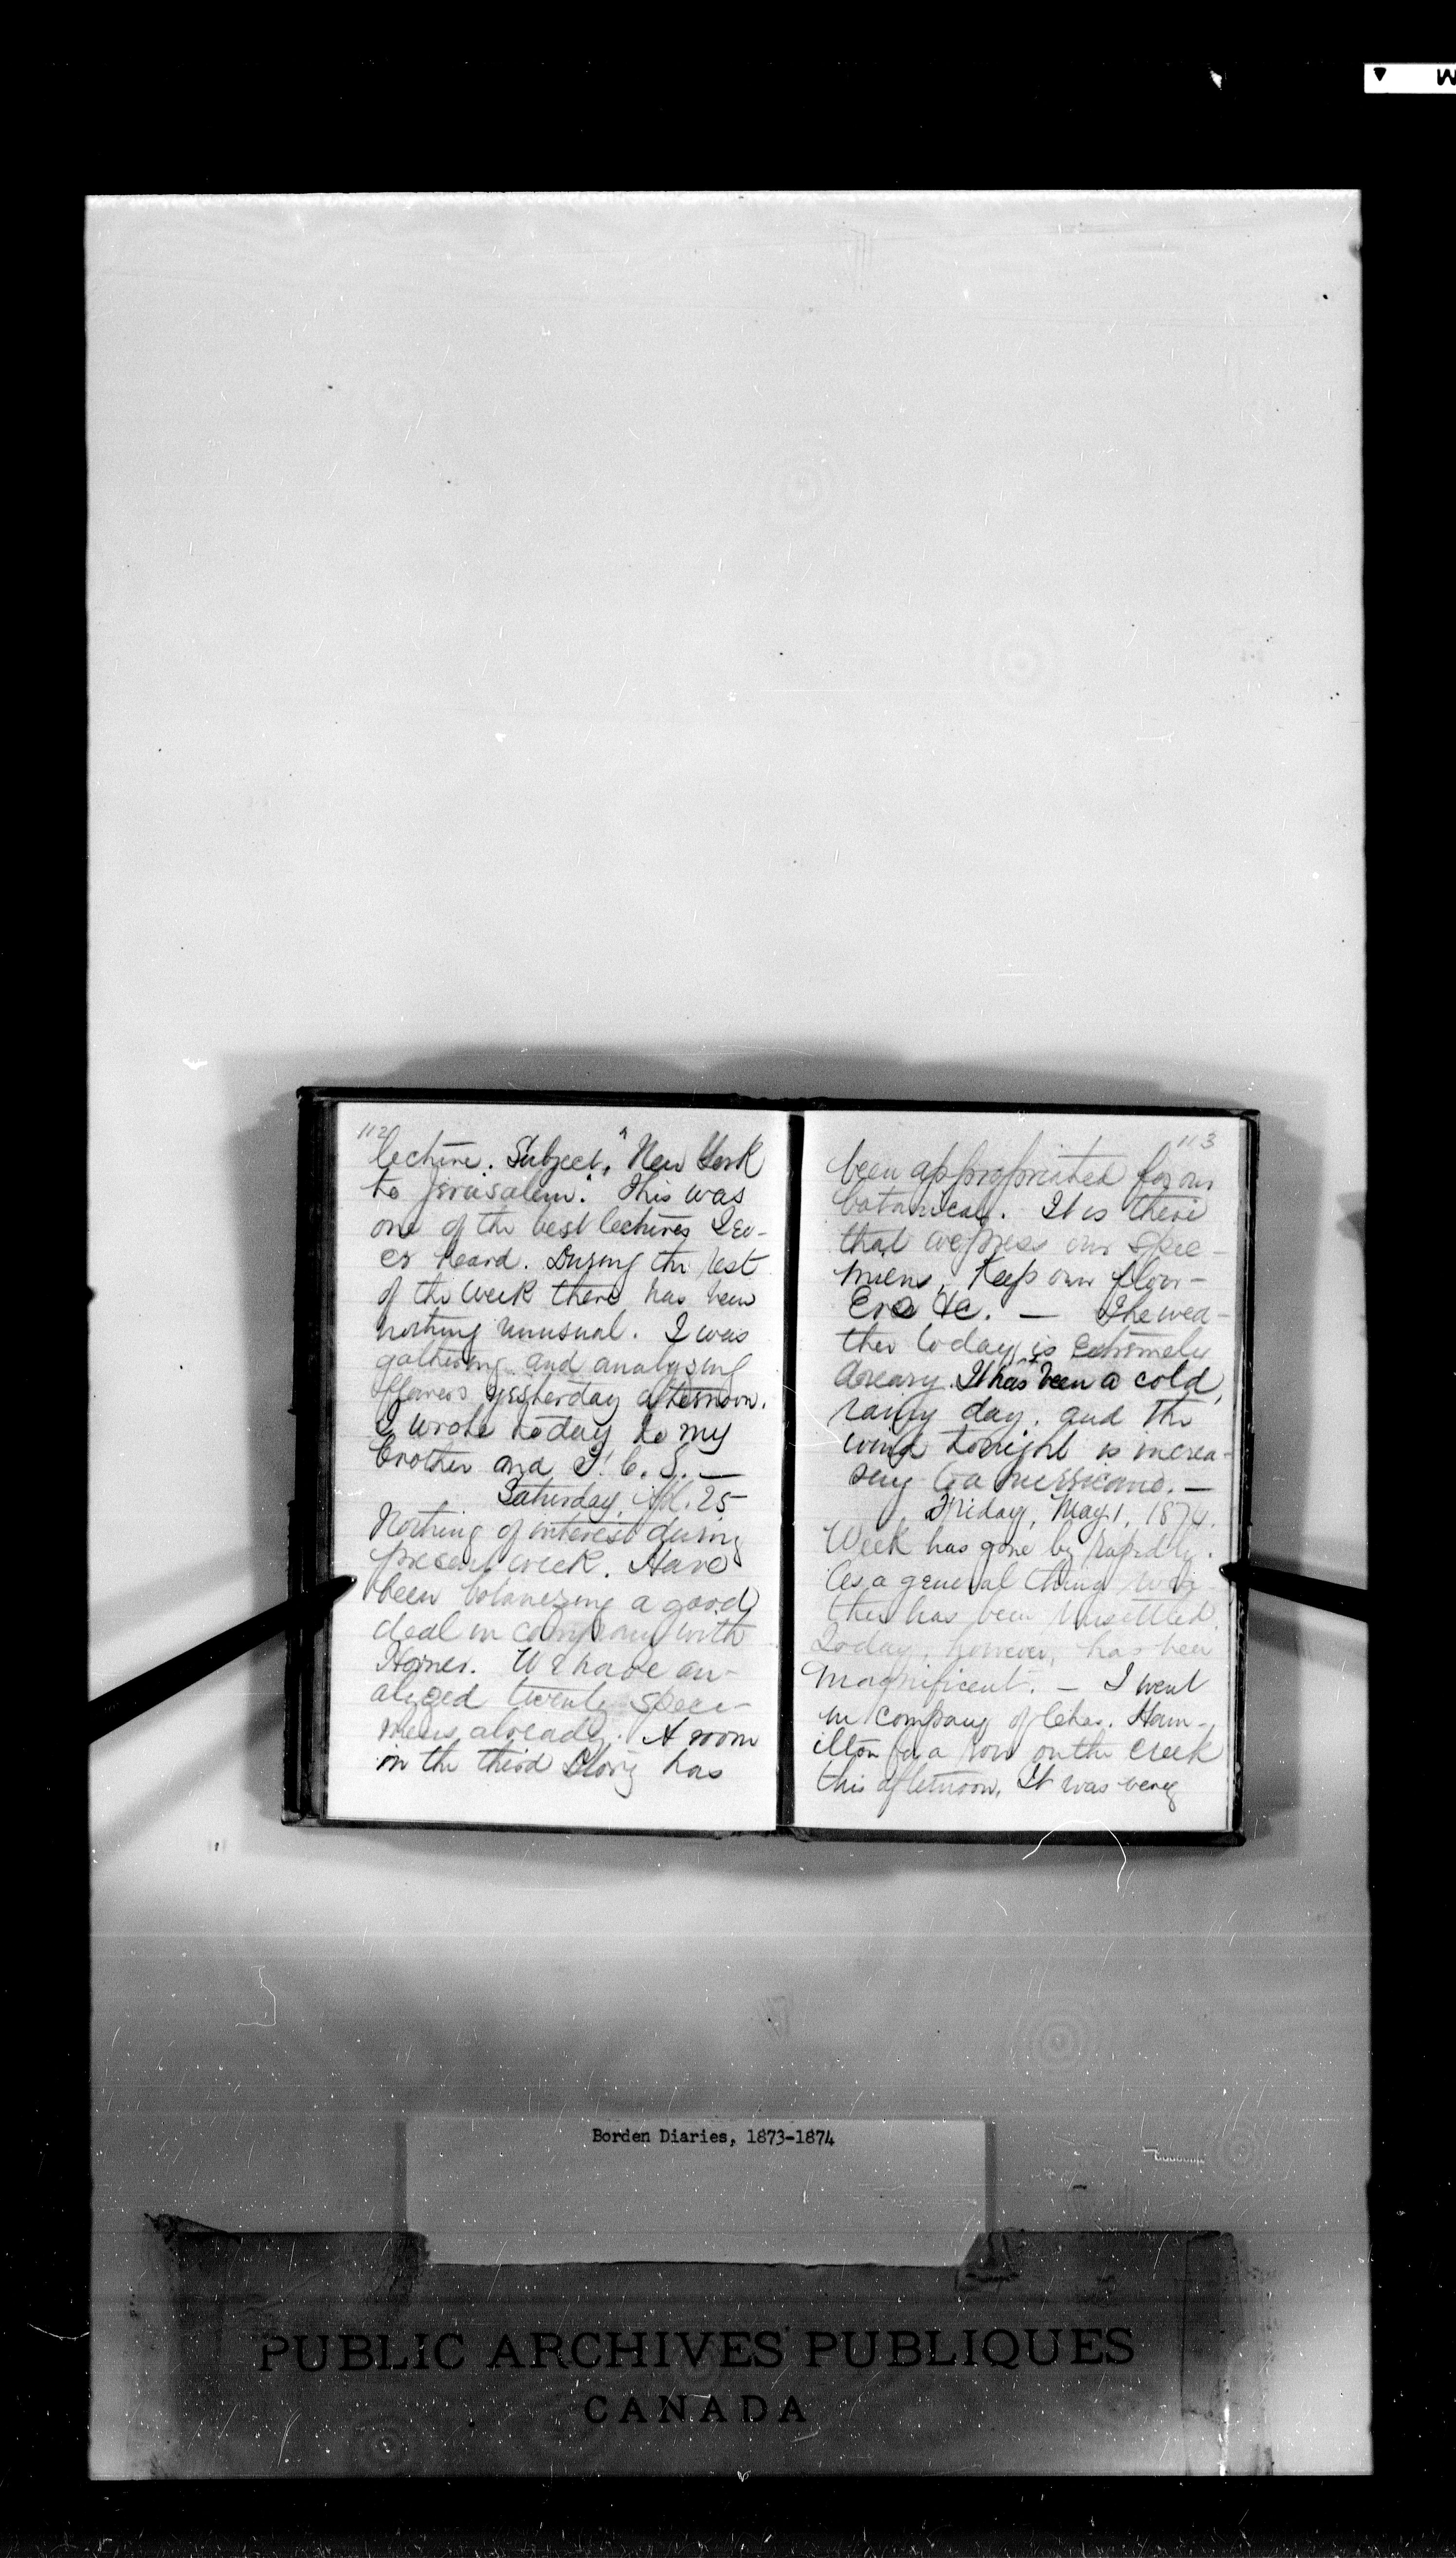 112
lecture. Subject, "New York
to Jerusalem." This was
one of the best lectures I ev-
er heard. During the rest
of the week there has been
nothing unusual. I was
gathering and analysing
flowers yesterday afternoon.
I wrote today to my
brother and J. C. S. —
Saturday, Apl. 25
Nothing of interest during
present week. Have
been botanizing a good
deal in company with
Horner. We have an-
alyzed twenty speci-
mens already. A room
in the third story has
113
been appropriated for our
botanical. It is there
that we press our spec-
imens, Keep our flow-
ers &c. — The wea-
ther today is extremely
dreary. It has been a cold,
rainy day, and the
wind tonight is increa-
sing to a hurricane. —
Friday, May 1, 1874.
Week has gone by rapidly.
As a general thing wea-
ther has been unsettled.
Today, however, has been
magnificent. — I went
in company of Chas. Ham-
ilton for a row on the creek
this afternoon. It was very
Borden Diaries, 1873-1874
PUBLIC ARCHIVES PUBLIQUES
CANADA